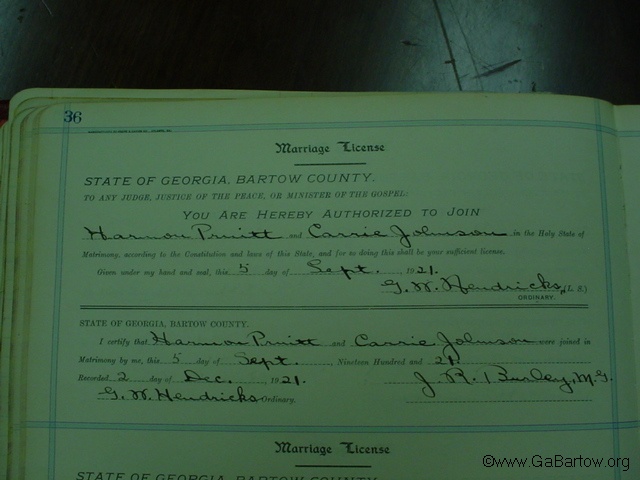 36
Marriage License
STATE OF GEORGIA, BARTOW COUNTY.
TO ANY JUDGE, JUSTICE OF THE PEACE, OR MINISTER OF THE GOSPEL:
YOU ARE HEREBY AUTHORIZED TO JOIN
Harmon Pruitt and Carrie Johnson in the Holy State of
Matrimony, according to the Constitution and laws of this State, and for so doing this shall be your sufficient license.
Given under my hand and seal, this 5 day of Sept. 1921.
G. W. Hendricks, (L. S.)
ORDINARY.
STATE OF GEORGIA, BARTOW COUNTY.
I certify that Harmon Pruitt and Carrie Johnson were joined in
Matrimony by me, this 5 day of Sept. Nineteen Hundred and 21
Recorded 2 day of Dec. 1921. J. R. Burley, M.G.
G. W. Hendricks Ordinary.
Marriage License
STATE OF GEORGIA, BARTOW COUNTY.
©www.GaBartow.org